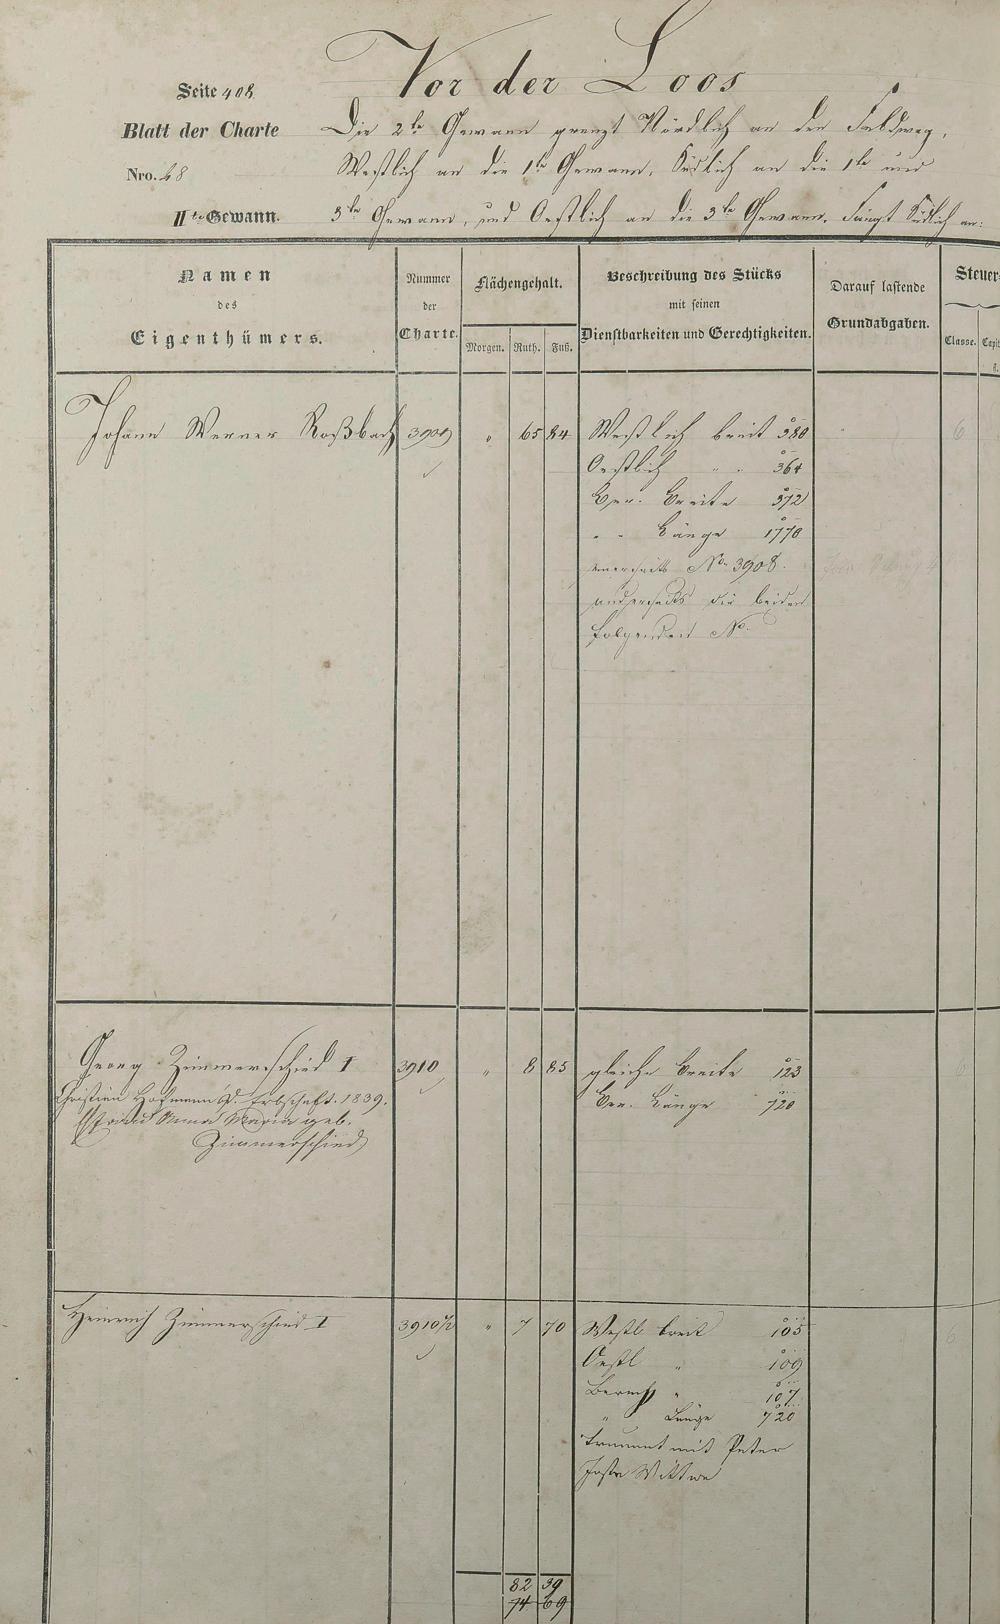 Vor der Loos
Seite 408
Blatt der Charte
Nro. 68
IIte Gewann.
Die 2te Gewann grenzt Nördlich an den Feldweg,
Westlich an die 1te Gewann, Südlich an die 1te und
3te Gewann, und Oestlich an die 3te Gewann. Fängt Südlich an:
Namen
des
Eigenthümers.
Nummer
der
Charte.
Flächengehalt.
Morgen. Ruth. Fuß.
Beschreibung des Stücks
mit seinen
Dienstbarkeiten und Gerechtigkeiten.
Darauf lastende
Grundabgaben.
Steuer-
Classe. Capit
fl.
Johann Werner Roßbach 3909 " 65 84 Westlich breit 380 6
Oestlich " " 364
Ber. Breite 372
" " Länge 1770
einerseits No. 3908.
anderseits die beiden
folgenden No.
Georg Zimmerschied I 3910 " 8 85 gleiche Breite 123 6
Christian Hofmann Erbschaft. 1839.
Ehefrau Anna Maria geb.
Zimmerschied
Ber. Länge 720
Heinrich Zimmerschied I 3910 1/2 " 7 70 Westl breit 105 6
Oestl " 109
Berech "  107
" Länge 720
trennt mit Peter
Wittwe
82 39
74 69